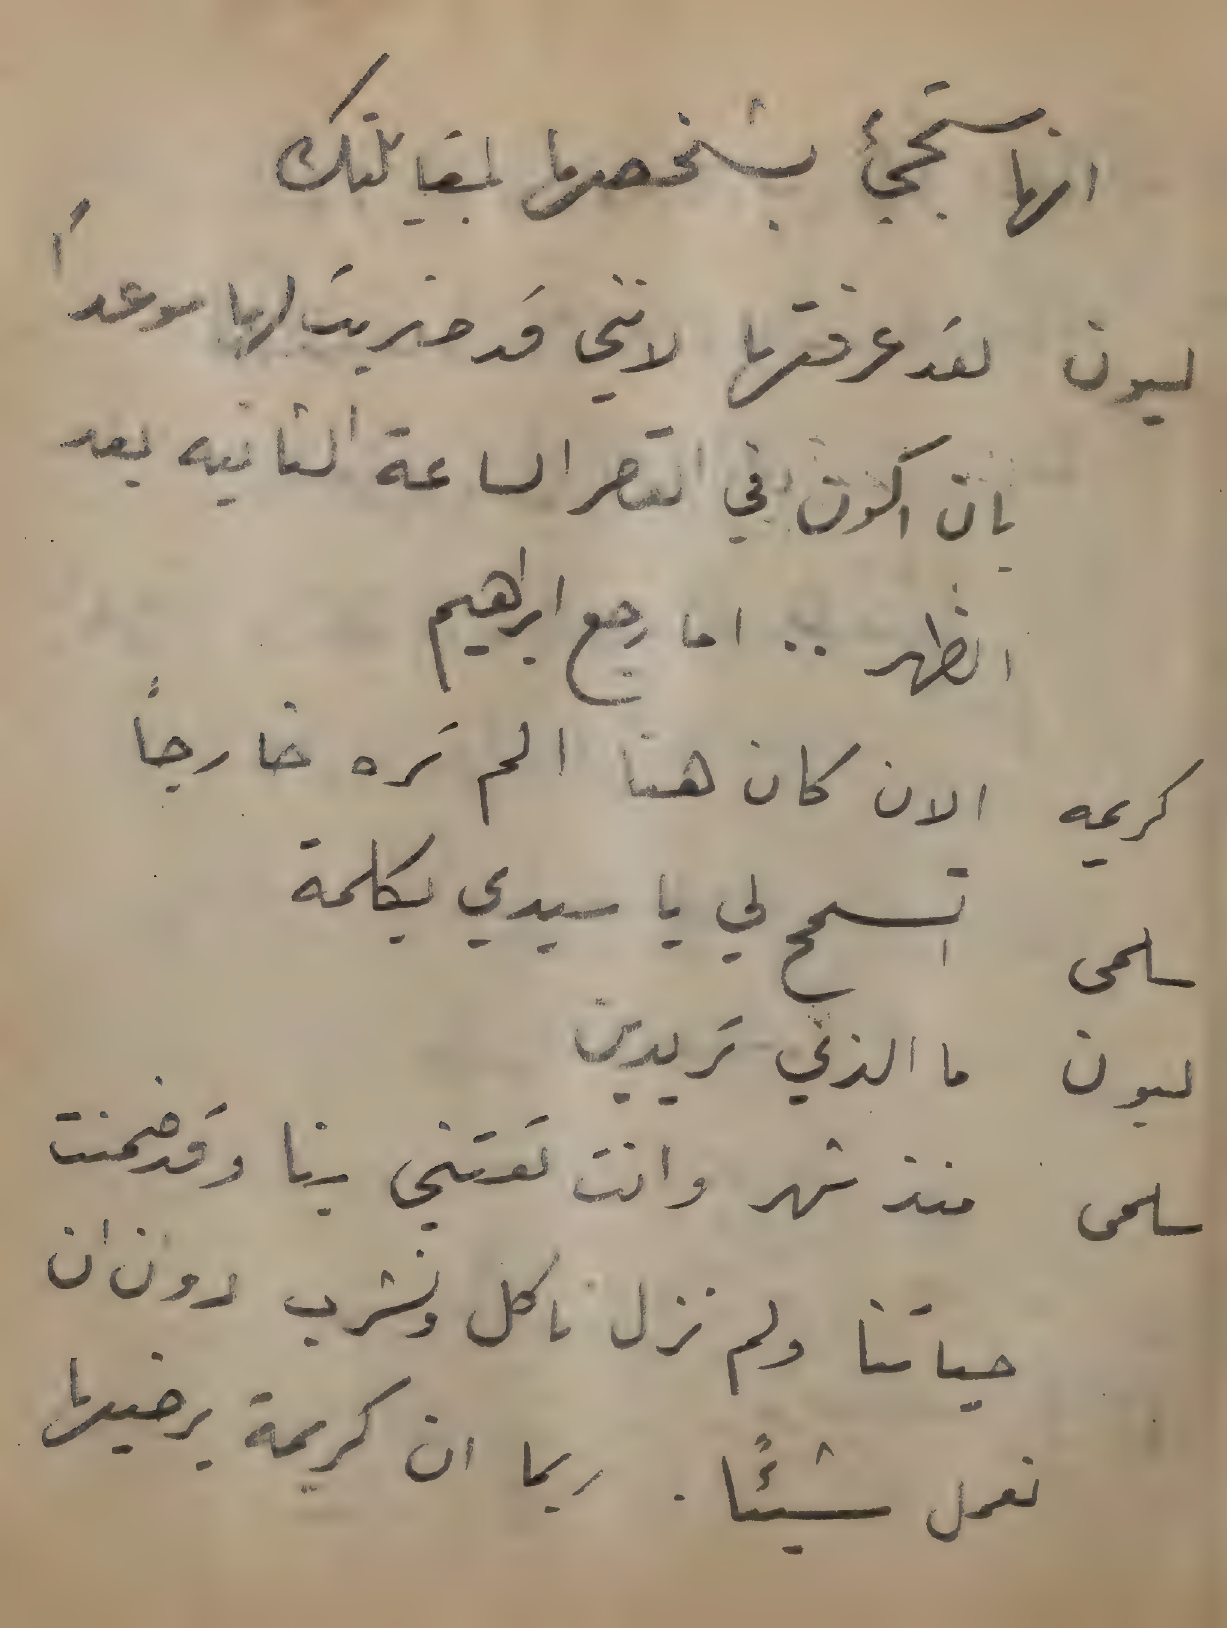 انها ستجيئ بشخصها لمقابلتك
ليون لقد عرفتها لانني قد ضربت لها موعداً
بان اكون في القصر الساعة الثانيه بعد
الظهر .. اما رجع ابرهيم
كريمه الان كان هنا الم تره خارجاً
سلمى اتسمح لي يا سيدي بكلمة
ليون ما الذي تريدين
سلمى منذ شهر وانت تعتني بنا وقد ضمنت
حياتنا ولم نزل ناكل ونشرب دون ان
نعمل شيئًا . ربما ان كريمة يرضيها